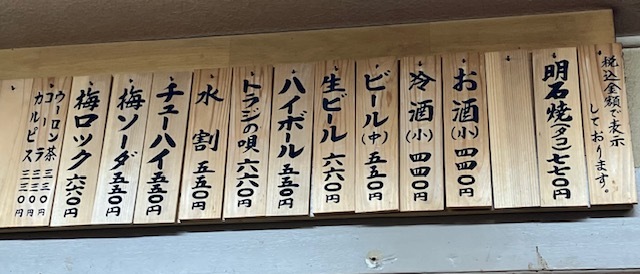 税込金額で表示
しております。
明石焼(タコ)七七〇円
お酒(小)四四〇円
冷酒(小)四四〇円
ビール(中)五五〇円
生ビール 六六〇円
ハイボール 五五〇円
トラジの唄 六六〇円
水割 五五〇円
チューハイ 五五〇円
梅ソーダ 五五〇円
梅ロック 六六〇円
ウーロン茶 三三〇円
コーラ 三三〇円
カルピス 三三〇円